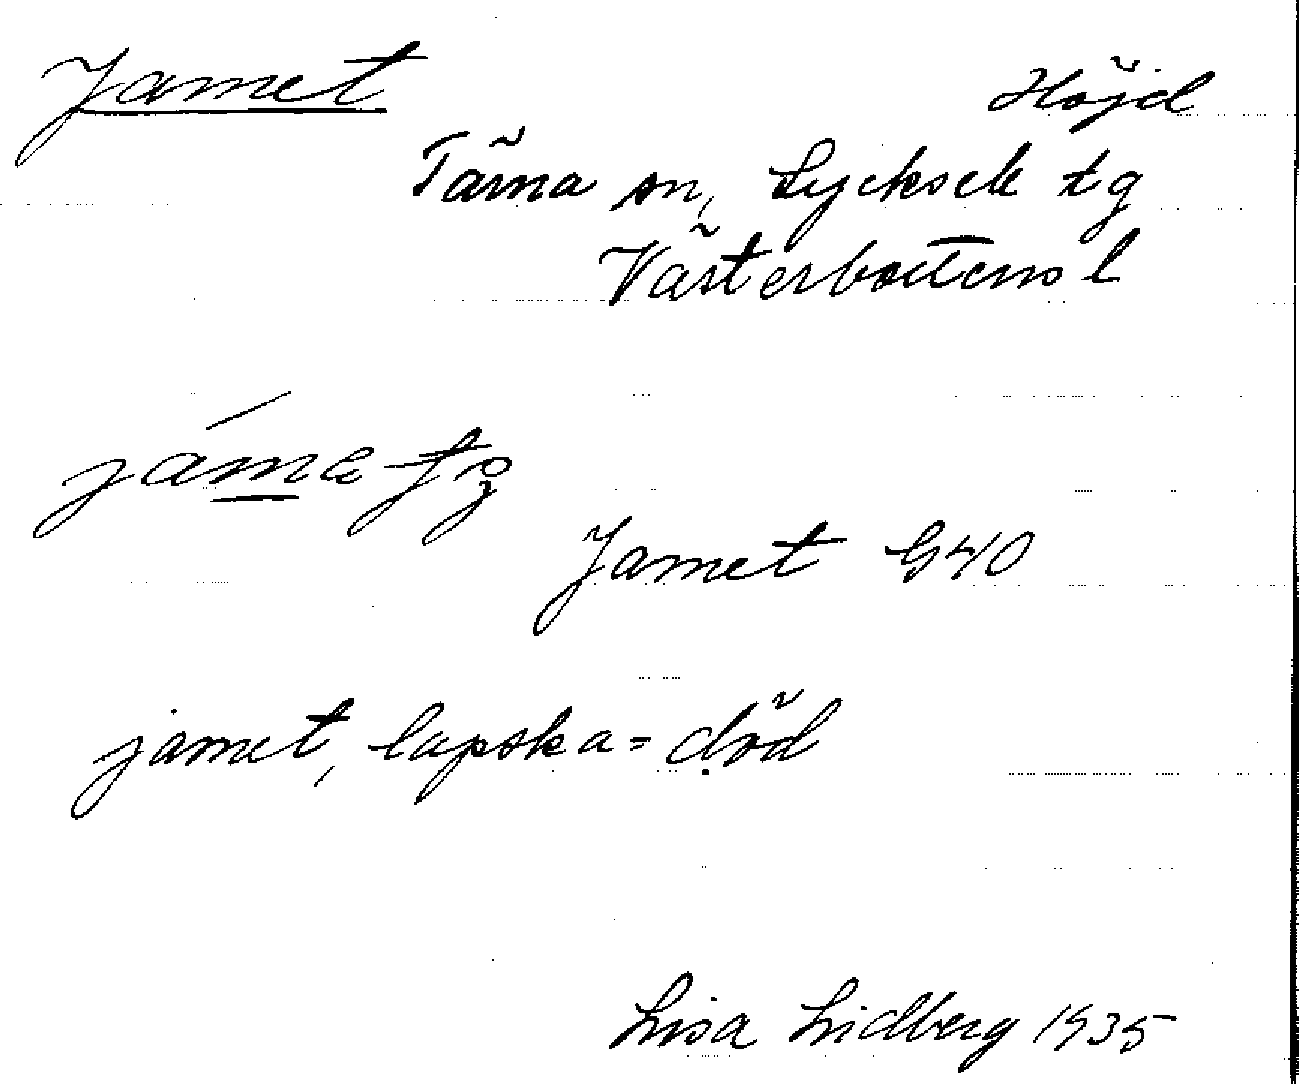 Jamet Höjd
Tärna sn, Lycksele tg
Västerbottens l
Jamet G40
jamet, lapska = död
Lisa Lidberg 1935